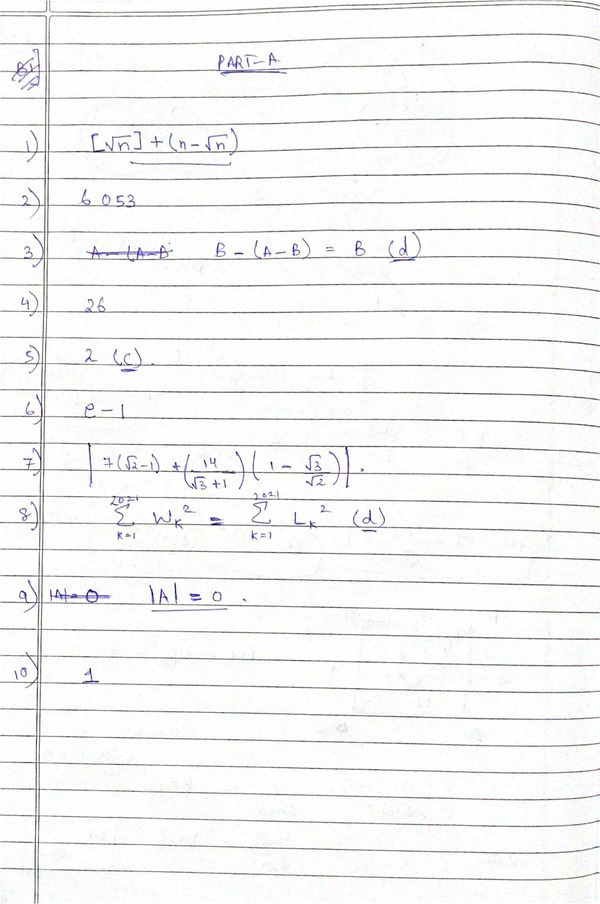 PART-A
1) [√n] + (n-√n)
2) 6053
3) A - (A-B B - (A-B) = B (d)
4) 26
5) 2 (c).
6) e-1
7) | 7(√2-1) + (14/(√3+1)) (1 - √3/√2) |.
8) ∑_{k=1}^{2021} W_k² = ∑_{k=1}^{2021} L_k² (d)
9) |A| = 0 |A| = 0.
10) 1